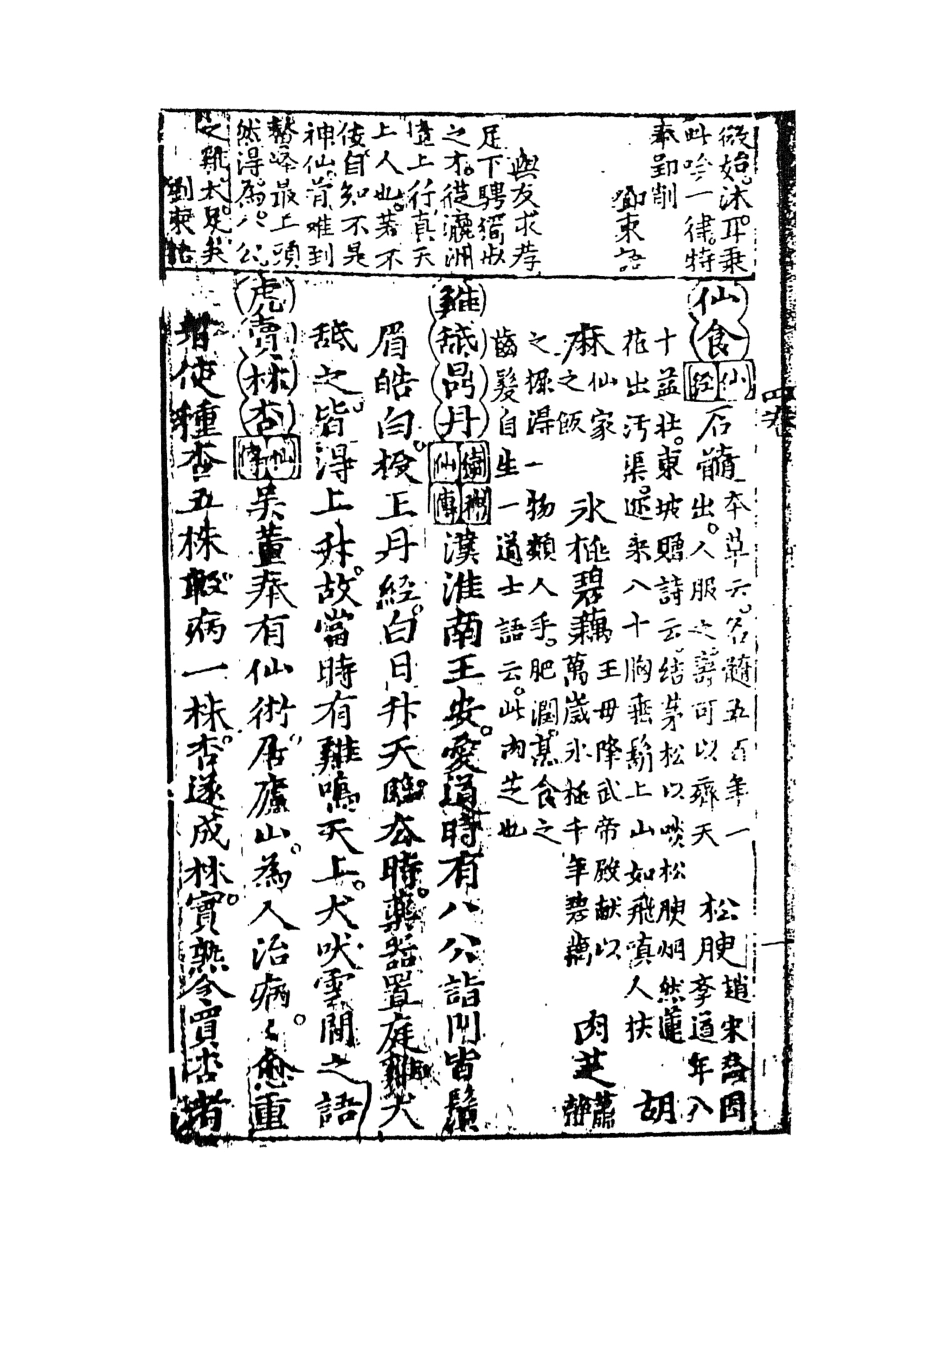 欲始沐耳乗
此吟一律特
奉郢削
鄧東語
與友求荐
足下騁
之才從瀛洲
上行真天
上人也若不
使自知不是
神仙骨难到
鰲峰最上頭
然得為八公
之雞犬足矣
劉東語
仙食
仙經
石髓
本草云名髓五百年一
出人服之壽可以齊天
松腴
趙宋
李道年八
十益壮東坡贈詩云結茅松以啖松腴烟然蓮
花出污渠近来八十胸垂鬍上山如飛嗔人扶
胡
麻
仙家
之飯
氷桃碧藕
王母降武帝殿献以
萬歲氷桃千年碧藕
肉芝
蕭静
之掘得一物類人手肥潤其食之
齒髮自生一道士語云此肉芝也
雞舐鼎丹
神仙傳
漢淮南王安愛道時有八公詣門皆鬚
眉皓白授王丹経白日升天臨去時藥器置庭雞犬
舐之皆得上升故當時有雞鳴天上犬吠雲間之語
虎賣林杏
仙傳
吳董奉有仙術居廬山為人治病〻愈重
者使種杏五株軽病一株杏遂成林實熟令買杏者
四卷